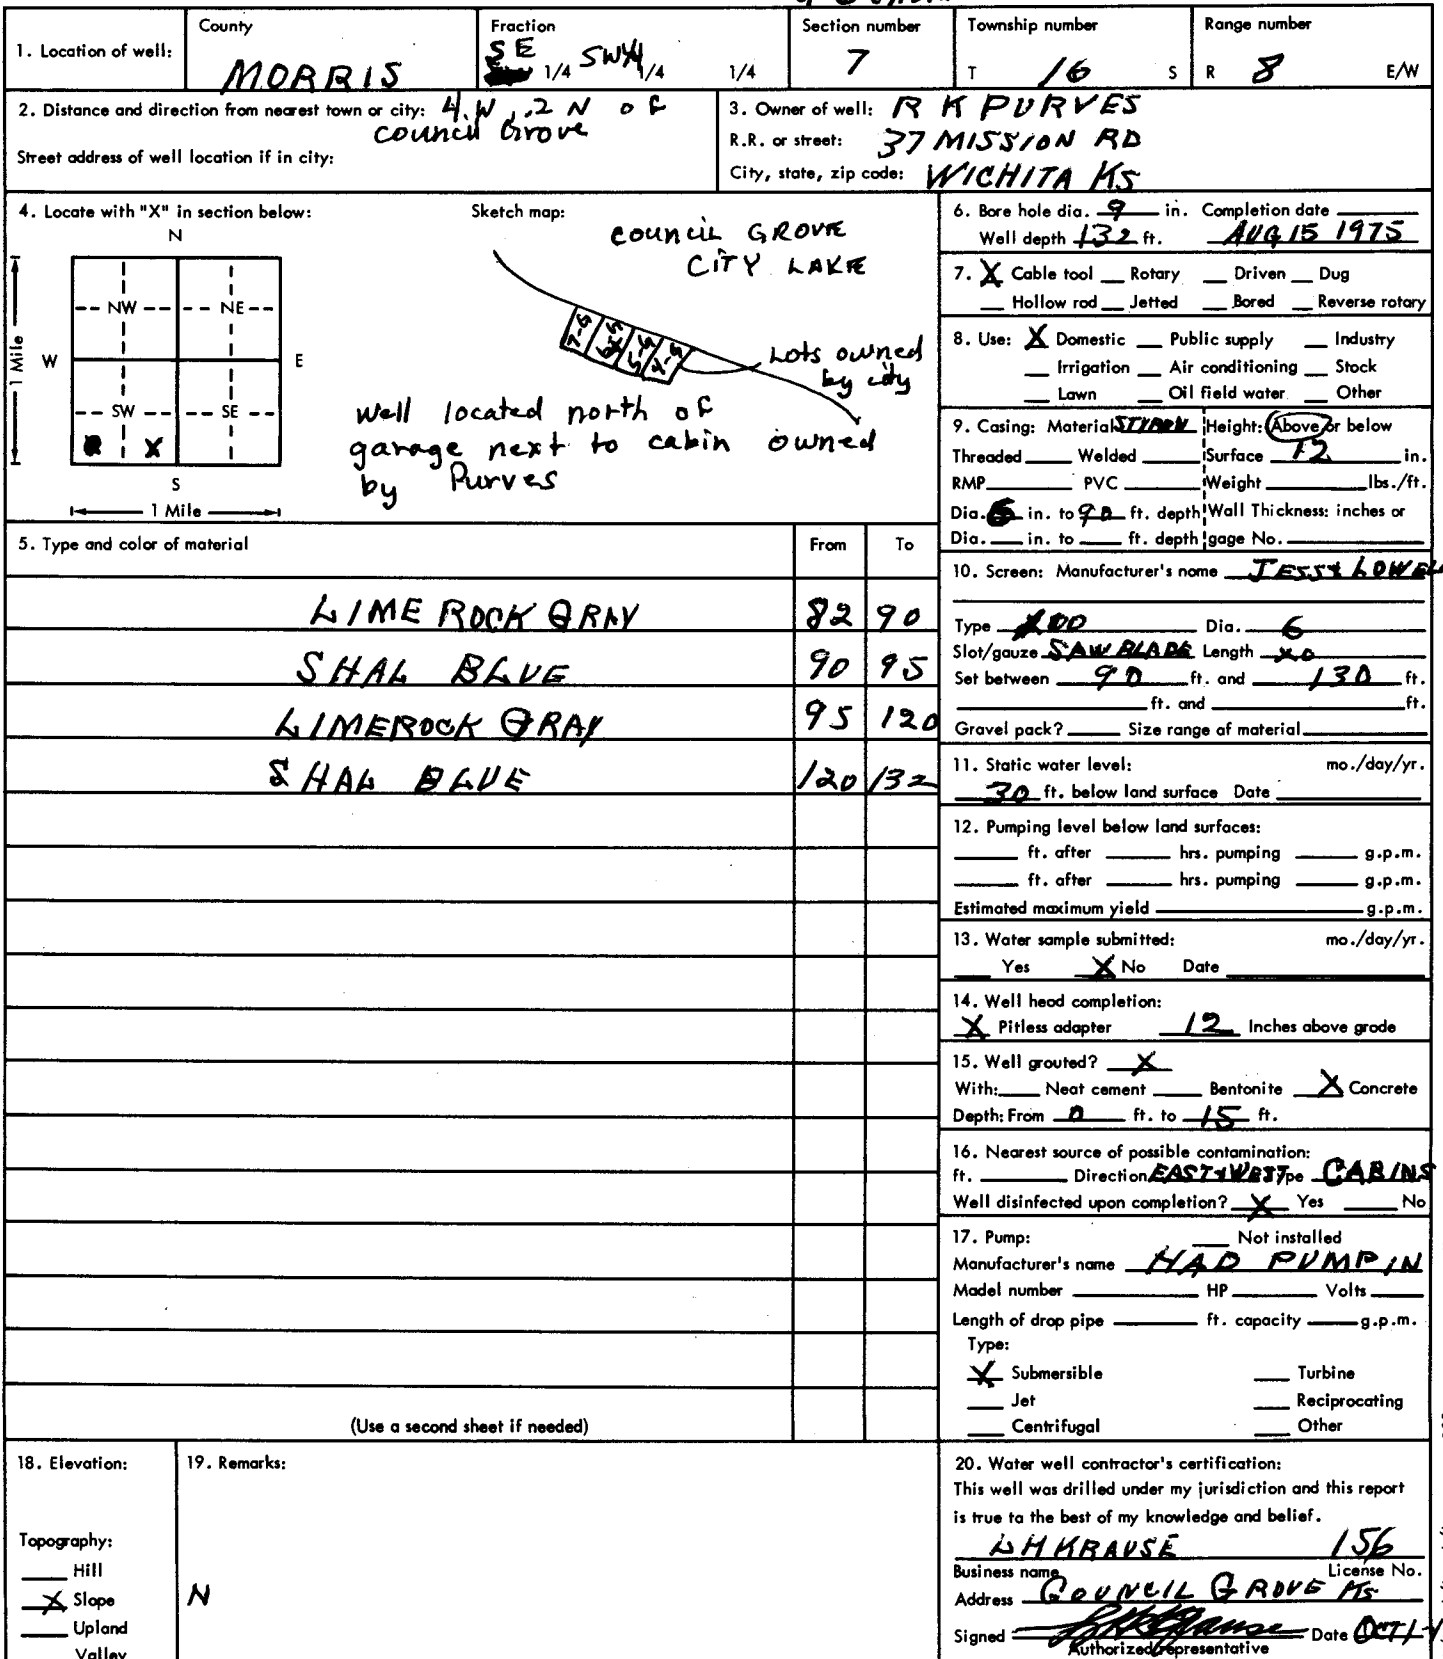 County Fraction Section number Township number Range number
1. Location of well: MORRIS SE 1/4 SW1/4 1/4 1/4 7 T 16 S R 8 E/W
2. Distance and direction from nearest town or city: 4.W ,2 N OF
Council Grove
Street address of well location if in city:
3. Owner of well: R K PURVES
R.R. or street: 37 MISSION RD
City, state, zip code: WICHITA KS
4. Locate with "X" in section below: Sketch map:
N
NW NE
W E
SW SE
X
S
1 Mile
1 Mile
COUNCIL GROVE
CITY LAKE
7-G 5-G 4-G
Lots owned
by city
Well located north of
garage next to cabin owned
by Purves
5. Type and color of material From To
LIME ROCK GRAY 82 90
SHAL BLUE 90 95
LIMEROCK GRAY 95 120
SHAL BLUE 120 132
(Use a second sheet if needed)
6. Bore hole dia. 9 in. Completion date
Well depth 132 ft. AUG 15 1975
7. X Cable tool Rotary Driven Dug
Hollow rod Jetted Bored Reverse rotary
8. Use: X Domestic Public supply Industry
Irrigation Air conditioning Stock
Lawn Oil field water Other
9. Casing: Material Height: Above or below
Threaded Welded Surface 12 in.
RMP PVC Weight lbs./ft.
Dia. 6 in. to 90 ft. depth Wall Thickness: inches or
Dia. in. to ft. depth gage No.
10. Screen: Manufacturer's name JESS & LOWELL
Type Dia. 6
Slot/gauze SAW BLADE Length
Set between 90 ft. and 130 ft.
ft. and ft.
Gravel pack? Size range of material
11. Static water level: mo./day/yr.
30 ft. below land surface Date
12. Pumping level below land surfaces:
ft. after hrs. pumping g.p.m.
ft. after hrs. pumping g.p.m.
Estimated maximum yield g.p.m.
13. Water sample submitted: mo./day/yr.
Yes X No Date
14. Well head completion:
X Pitless adapter 12 Inches above grade
15. Well grouted? X
With: Neat cement Bentonite X Concrete
Depth: From 0 ft. to 15 ft.
16. Nearest source of possible contamination:
ft. Direction EAST & WEST Type CABINS
Well disinfected upon completion? X Yes No
17. Pump: Not installed
Manufacturer's name HAD PUMP IN
Model number HP Volts
Length of drop pipe ft. capacity g.p.m.
Type:
X Submersible Turbine
Jet Reciprocating
Centrifugal Other
18. Elevation:
Topography:
Hill
X Slope
Upland
Valley
19. Remarks:
N
20. Water well contractor's certification:
This well was drilled under my jurisdiction and this report
is true to the best of my knowledge and belief.
LH KRAUSE 156
Business name License No.
Address COUNCIL GROVE KS
Signed LH Krause Date OCT 1
Authorized representative